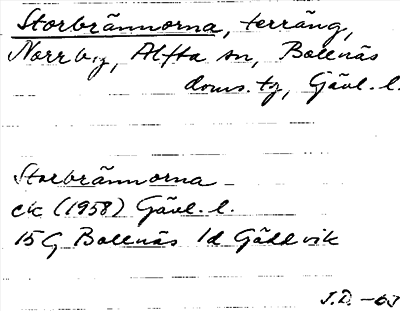 Storbrännorna, terräng,
Norrby, Alfta sn, Bollnäs
doms. tg, Gävl. l.
Storbrännorna
ek (1958) Gävl. l.
15G Bollnäs 1d Gäddvik
J.D. -63